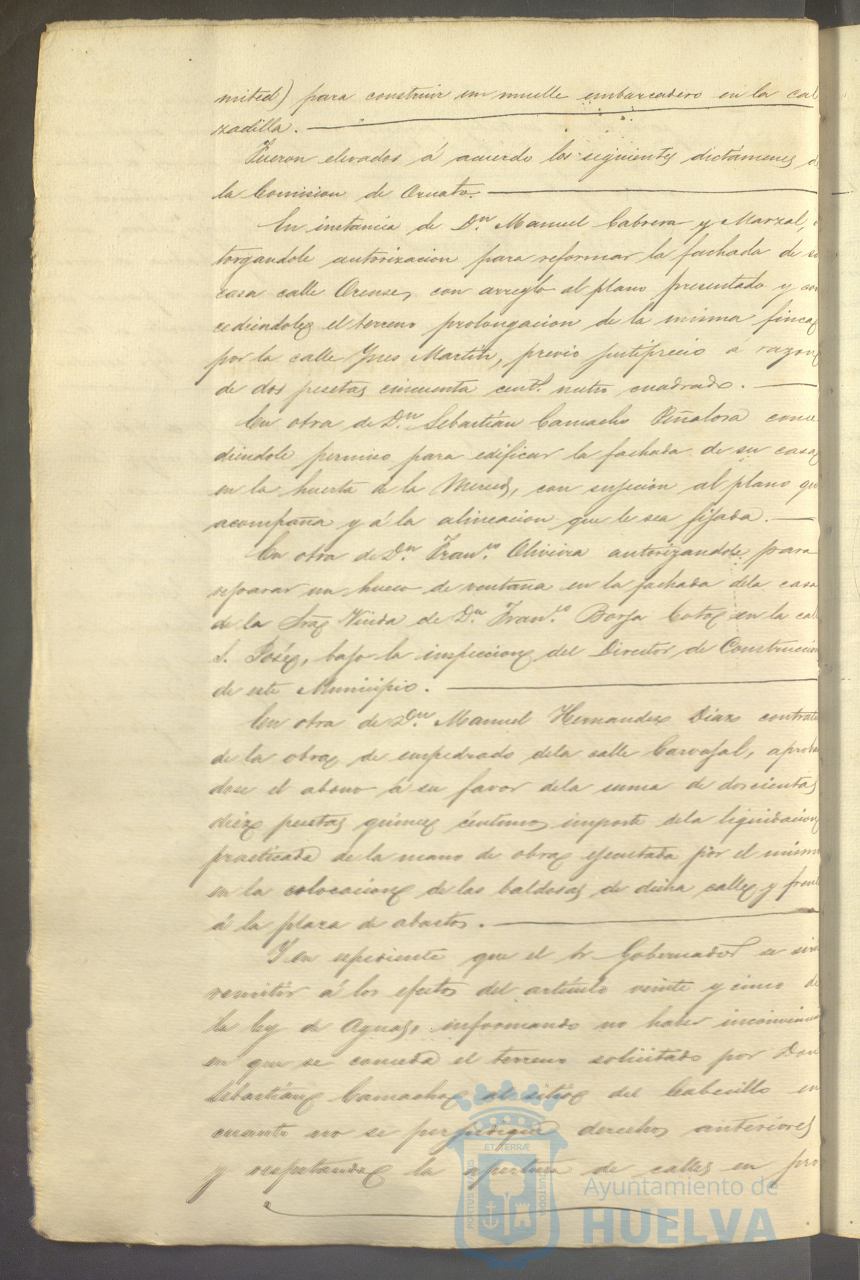 mited) para construir un muelle embarcadero en la cal
zadilla.
Fueron elevados á acuerdo los siguientes dictámenes d
la Comision de Ornato.
En instancia de Dn. Manuel Cabrera y Marzal,
torgandole autorizacion para reformar la fachada de su
casa calle Orense, con arreglo al plano presentado y con
cediendole el terreno prolongacion de la misma finca
por la calle Ynes Martin, previo justiprecio á razon
de dos pesetas cincuenta cent. metro cuadrado.
En otra de Dn. Sebastián Camacho Peñalosa conce
diendole permiso para edificar la fachada de su casa
en la huerta de la Merced, con sujecion al plano qu
acompaña y á la alineacion que le sea fijada.
En otra de Dn. Franco. Oliveira autorizandole para
reparar un hueco de ventana en la fachada dela casa
de la Sra Viuda de Dn. Franco. Borja Coto en la cal
S. José, bajo la inspeccion del Director de Construccion
de este Municipio.
En otra de Dn. Manuel Hernandez Diaz contrati
de la obra de empedrado dela calle Carvajal, aproban
dose el abono á su favor dela suma de doscientas
diez pesetas quince céntimos importe dela liquidacion
practicada de la mano de obra ejecutada por el mismo
en la colocacion de las baldosas de dicha calle y frent
á la plaza de abastos.
Y en espediente que el Sr. Gobernador se sirve
remitir á los efectos del artículo veinte y cinco de
la ley de Aguas, informando no haber inconvenient
en que se conceda el terreno solicitado por Don
Sebastián Camacho al sitio del Cabecillo en
cuanto no se perjudique derechos anteriores
y respetando la apertura de calles en pro
PORTUS MARIS
ET TERRÆ
CUSTODIA
Ayuntamiento de
HUELVA